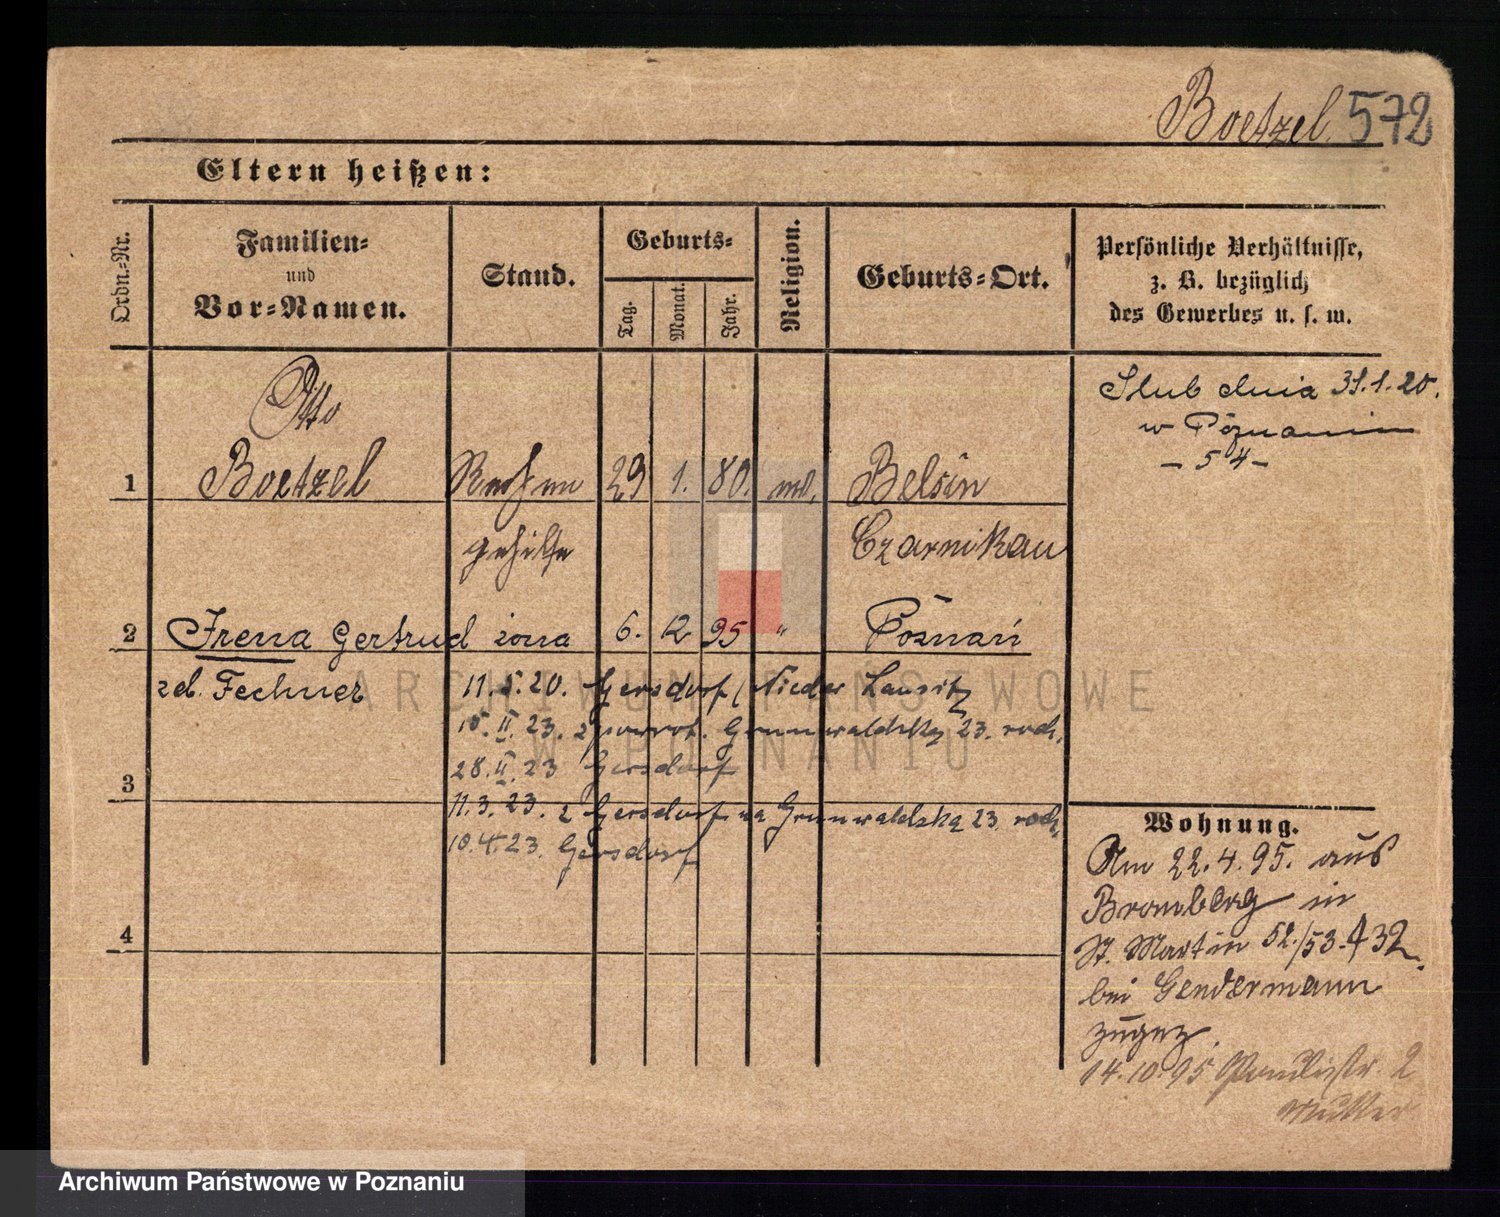 Boetzel 572
Eltern heißen:
Ordn.-Nr.
Familien-
und
Vor-Namen.
Stand.
Geburts-
Tag.
Monat.
Jahr.
Religion.
Geburts-Ort.
Persönliche Verhältnisse,
z. B. bezüglich
des Gewerbes u. s. w.
Otto
1 Boetzel 29 1. 80. Belsin
gehilfe Czarnikau
Ślub dnia 31.1.20.
w Poznaniu
- 54 -
2 Irena Gertrud żona 6. 12 95 " Poznań
zd. Fechner
11.5.20. Gersdorf (Nieder Lausitz
15.II.23. z powrot. Grunwaldzka 23.
28.II.23 Gersdorf
3
11.3.23. z Gersdorf na Grunwaldzką 23.
10.4.23. Gersdorf
4
Wohnung.
Am 22.4.95. aus
Bromberg in
St. Martin 52./53.
bei Gendermann
zugez.
14.10.95 Paulistr. 2
Mutter
ARCHIWUM PAŃSTWOWE
W POZNANIU
Archiwum Państwowe w Poznaniu